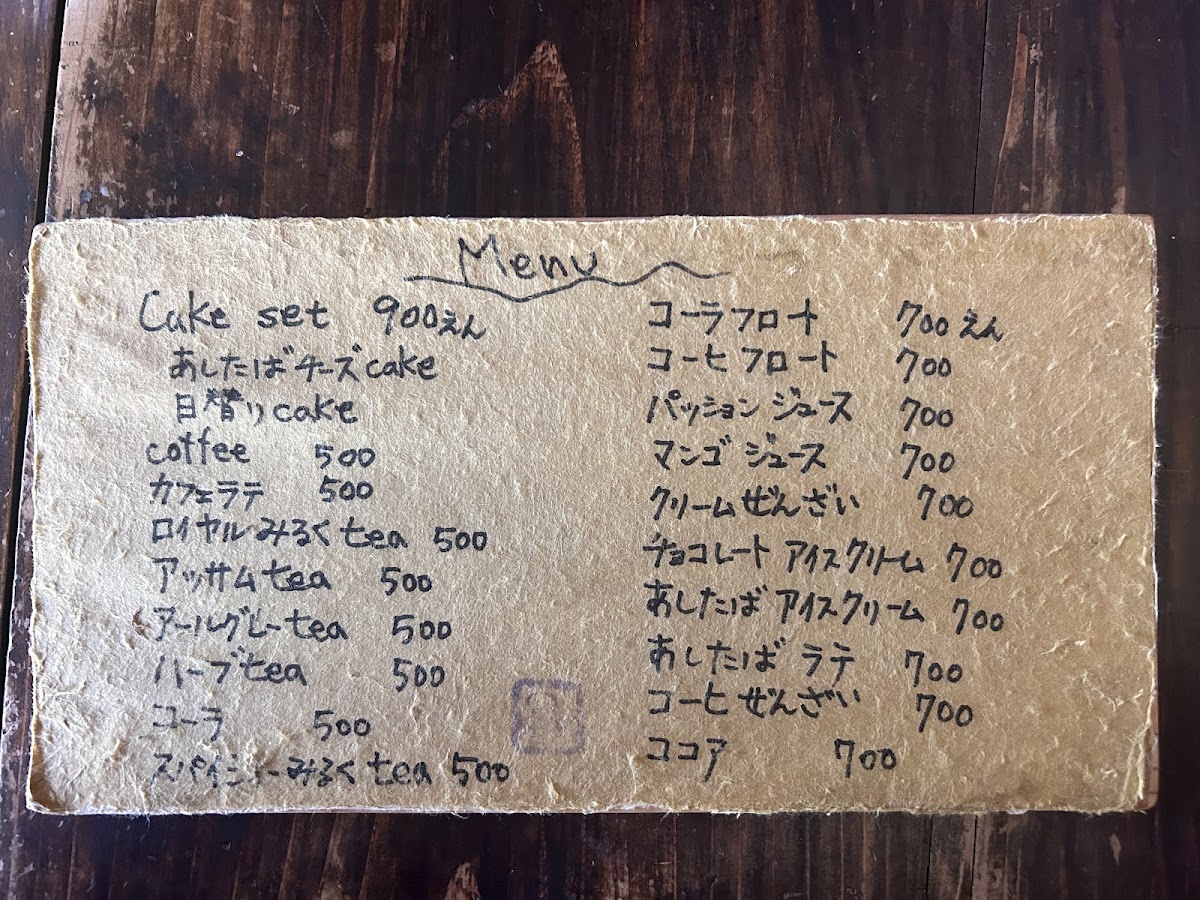 Menu
Cake set 900えん
あしたばチーズcake
日替りcake
coffee 500
カフェラテ 500
ロイヤルみるくtea 500
アッサムtea 500
アールグレーtea 500
ハーブtea 500
コーラ 500
スパイシーみるくtea 500
コーラフロート 700えん
コーヒフロート 700
パッションジュース 700
マンゴジュース 700
クリームぜんざい 700
チョコレートアイスクリーム 700
あしたばアイスクリーム 700
あしたばラテ 700
コーヒぜんざい 700
ココア 700